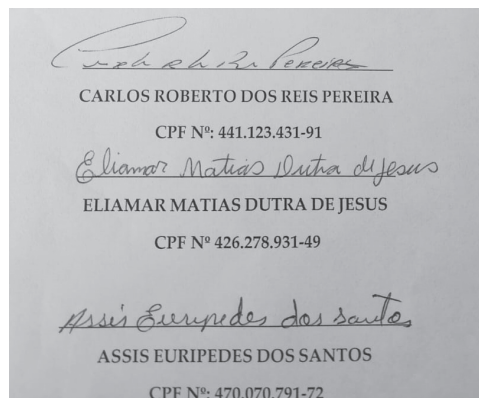 Pereira
CARLOS ROBERTO DOS REIS PEREIRA
CPF Nº: 441.123.431-91
Eliamar Matias Dutra de Jesus
ELIAMAR MATIAS DUTRA DE JESUS
CPF Nº 426.278.931-49
Assis Euripedes dos santos
ASSIS EURIPEDES DOS SANTOS
CPF Nº: 470.070.791-72